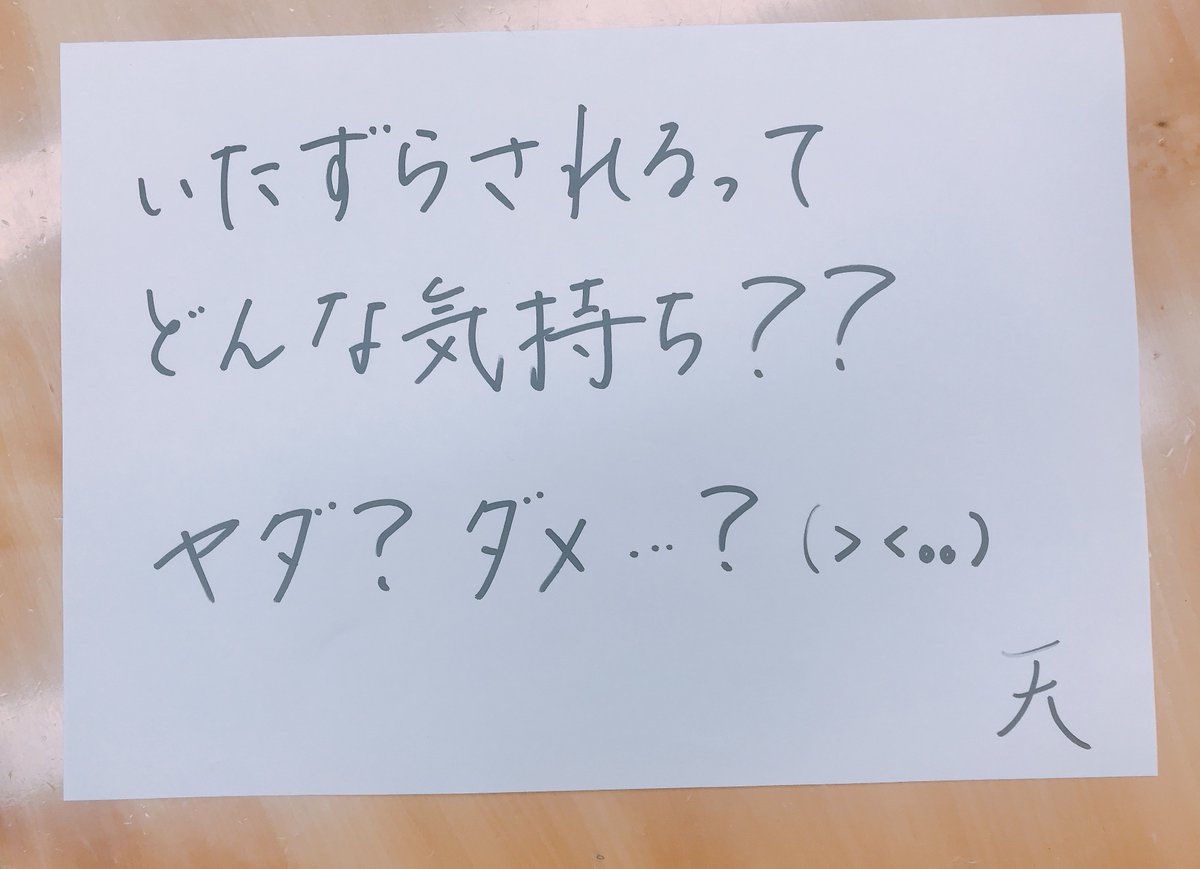 いたずらされるって
どんな気持ち??
ヤダ? ダメ…? (><。。)
天